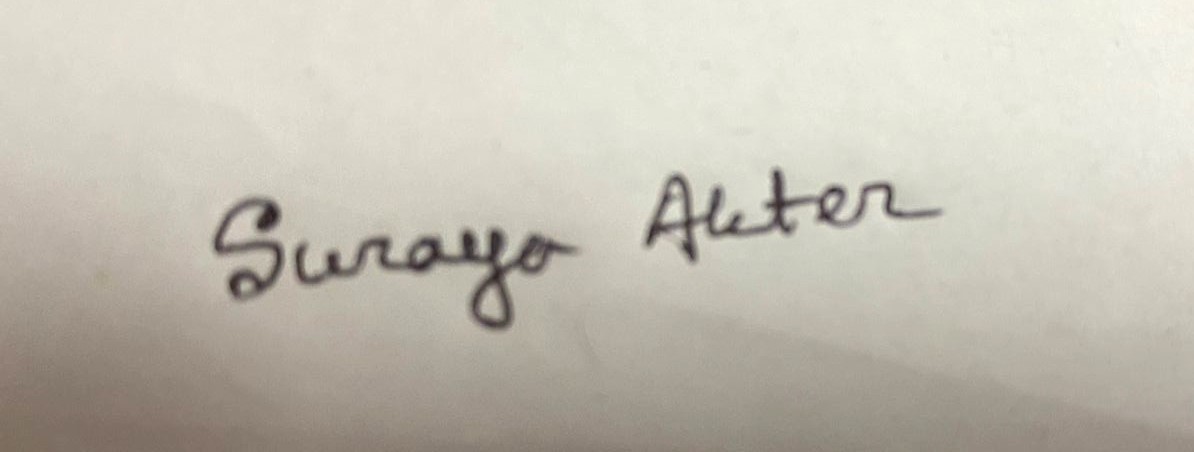 Suraya Akter